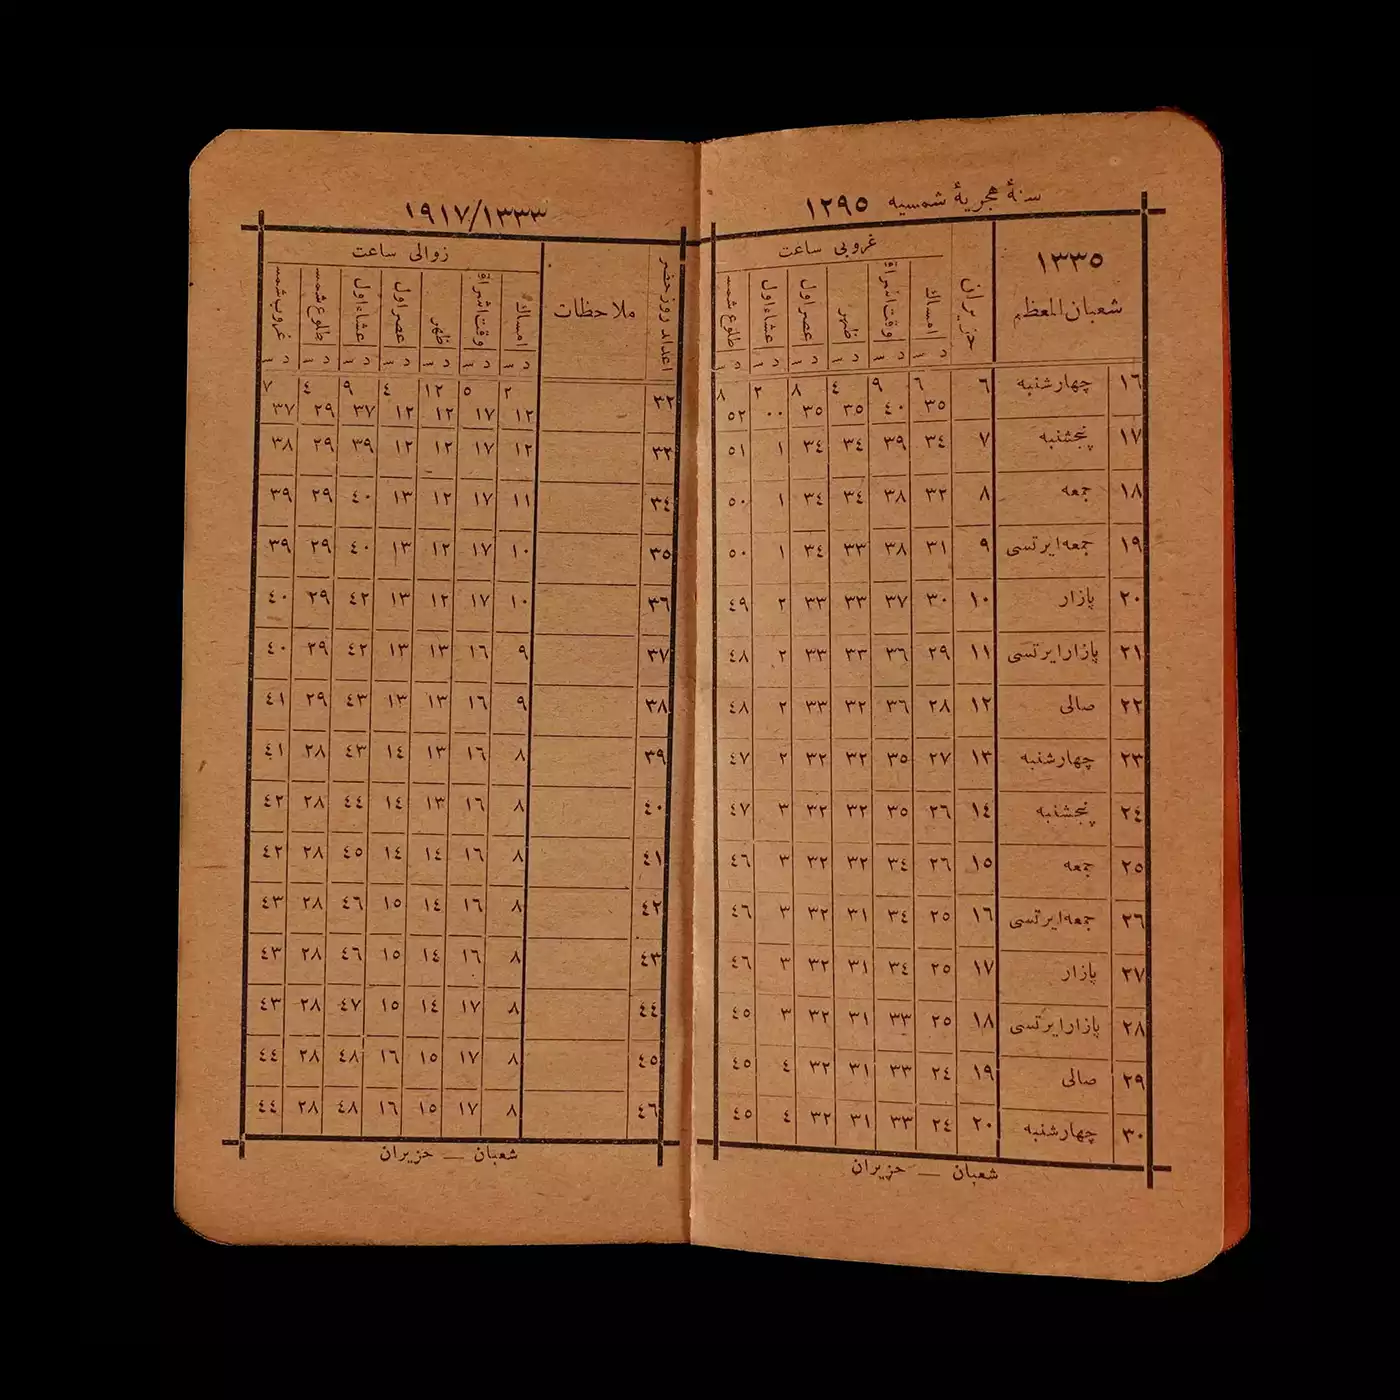 سنۀ هجریۀ شمسیه ١٢٩٥
١٣٣٥
شعبان المعظم
حزیران
غروبی ساعت
امساك وقت اشراق ظهر عصر اول عشاء اول طلوع شمس
د س د س د س د س د س د س
١٦ چهارشنبه ٦ ٦ ٣٥ ٩ ٤٠ ٤ ٣٥ ٨ ٣٥ ٢ ٠٠ ٨ ٥٢
١٧ پنجشنبه ٧ ٣٤ ٣٩ ٣٤ ٣٤ ١ ٥١
١٨ جمعه ٨ ٣٢ ٣٨ ٣٤ ٣٤ ١ ٥٠
١٩ جمعه ایرتسی ٩ ٣١ ٣٨ ٣٣ ٣٤ ١ ٥٠
٢٠ پازار ١٠ ٣٠ ٣٧ ٣٣ ٣٣ ٢ ٤٩
٢١ پازار ایرتسی ١١ ٢٩ ٣٦ ٣٣ ٣٣ ٢ ٤٨
٢٢ صالی ١٢ ٢٨ ٣٦ ٣٢ ٣٣ ٢ ٤٨
٢٣ چهارشنبه ١٣ ٢٧ ٣٥ ٣٢ ٣٢ ٢ ٤٧
٢٤ پنجشنبه ١٤ ٢٦ ٣٥ ٣٢ ٣٢ ٣ ٤٧
٢٥ جمعه ١٥ ٢٦ ٣٤ ٣٢ ٣٢ ٣ ٤٦
٢٦ جمعه ایرتسی ١٦ ٢٥ ٣٤ ٣١ ٣٢ ٣ ٤٦
٢٧ پازار ١٧ ٢٥ ٣٤ ٣١ ٣٢ ٣ ٤٦
٢٨ پازار ایرتسی ١٨ ٢٥ ٣٣ ٣١ ٣٢ ٣ ٤٥
٢٩ صالی ١٩ ٢٤ ٣٣ ٣١ ٣٢ ٤ ٤٥
٣٠ چهارشنبه ٢٠ ٢٤ ٣٣ ٣١ ٣٢ ٤ ٤٥
شعبان — حزیران
١٩١٧/١٣٣٣
اعداد روز خضر
ملاحظات
زوالی ساعت
امساك وقت اشراق ظهر عصر اول عشاء اول طلوع شمس غروب شمس
د س د س د س د س د س د س د س
٣٢ ٢ ١٢ ٥ ١٧ ١٢ ١٢ ٤ ١٢ ٩ ٣٧ ٤ ٢٩ ٧ ٣٧
٣٣ ١٢ ١٧ ١٢ ١٢ ٣٩ ٢٩ ٣٨
٣٤ ١١ ١٧ ١٢ ١٣ ٤٠ ٢٩ ٣٩
٣٥ ١٠ ١٧ ١٢ ١٣ ٤٠ ٢٩ ٣٩
٣٦ ١٠ ١٧ ١٢ ١٣ ٤٢ ٢٩ ٤٠
٣٧ ٩ ١٦ ١٣ ١٣ ٤٢ ٢٩ ٤٠
٣٨ ٩ ١٦ ١٣ ١٣ ٤٣ ٢٩ ٤١
٣٩ ٨ ١٦ ١٣ ١٤ ٤٣ ٢٨ ٤١
٤٠ ٨ ١٦ ١٣ ١٤ ٤٤ ٢٨ ٤٢
٤١ ٨ ١٦ ١٤ ١٤ ٤٥ ٢٨ ٤٢
٤٢ ٨ ١٦ ١٤ ١٥ ٤٦ ٢٨ ٤٣
٤٣ ٨ ١٦ ١٤ ١٥ ٤٦ ٢٨ ٤٣
٤٤ ٨ ١٧ ١٤ ١٥ ٤٧ ٢٨ ٤٣
٤٥ ٨ ١٧ ١٥ ١٦ ٤٨ ٢٨ ٤٤
٤٦ ٨ ١٧ ١٥ ١٦ ٤٨ ٢٨ ٤٤
شعبان — حزیران